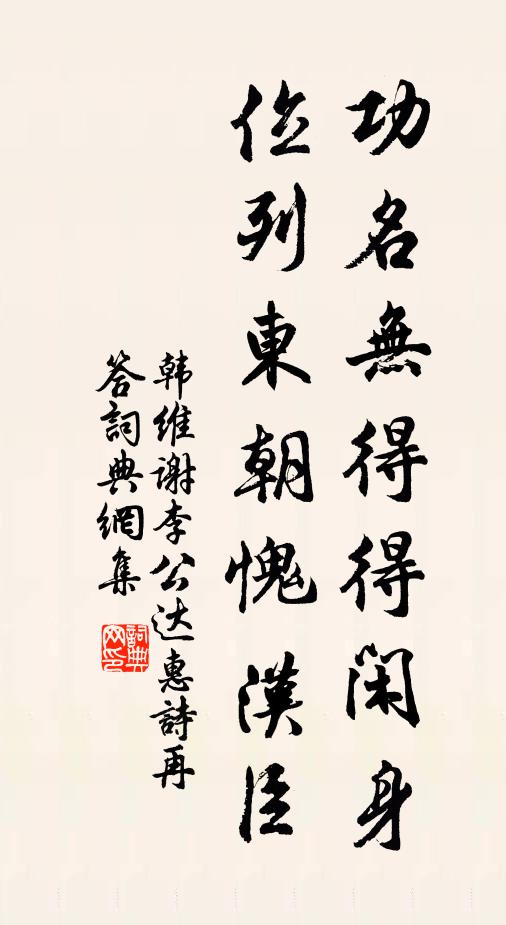 功名無得得閑身
位列東朝愧漢臣
韩維谢李公达惠詩再
答詞典網集
詞典网印